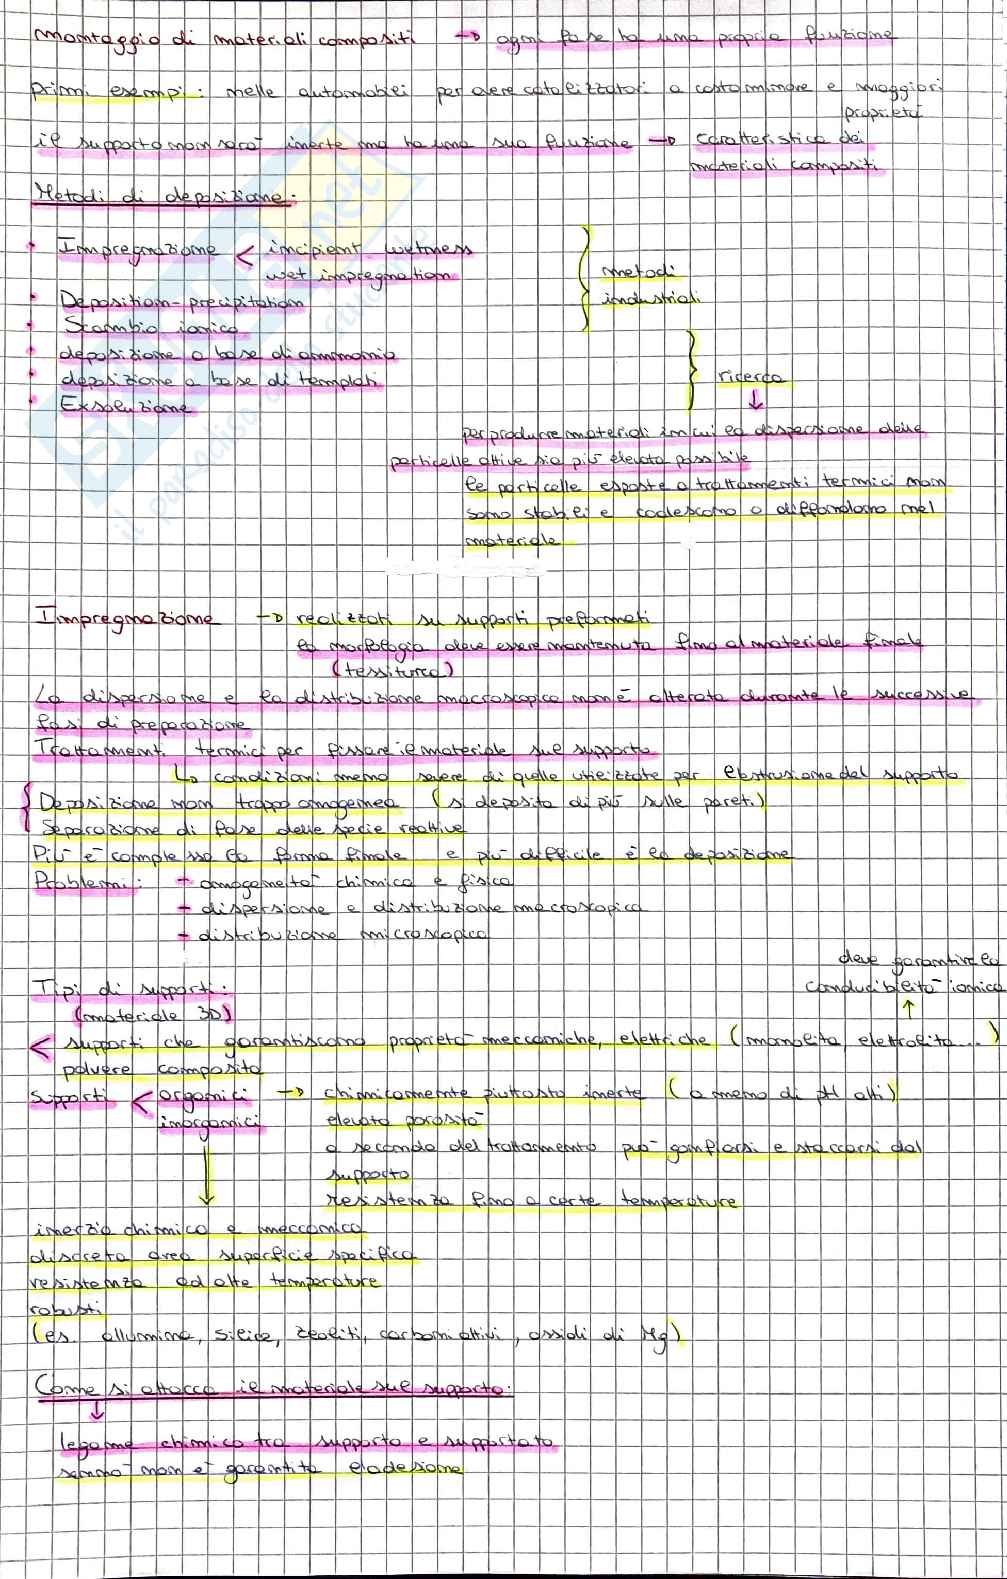 Montaggio di materiali compositi → ogni fase ha una propria funzione
primi esempi: nelle automobili per avere catalizzatori a costo minore e maggiori
proprietà
il supporto non sarà inerte ma ha una sua funzione → caratteristica dei
materiali compositi
Metodi di deposizione:
• Impregnazione < incipient wetness
wet impregnation
metodi
industriali
• Deposition-precipitation
• Scambio ionico
• deposizione a base di ammonio
• deposizione a base di templati
ricerca
• Exsoluzione
per produrre materiali in cui la dispersione delle
particelle attive sia più elevata possibile
le particelle esposte a trattamenti termici non
sono stabili e coalescono o diffondono nel
materiale
Impregnazione → realizzati su supporti preformati
la morfologia deve essere mantenuta fino al materiale finale
(tessitura)
La dispersione e la distribuzione macroscopica non è alterata durante le successive
fasi di preparazione
Trattamenti termici per fissare il materiale sul supporto
↳ condizioni meno severe di quelle utilizzate per l'estrusione del supporto
Deposizione non troppo omogenea (si deposita di più sulle pareti)
Separazione di fase delle specie reattive
Più è complessa la forma finale e più difficile è la deposizione
Problemi: - omogeneità chimica e fisica
- dispersione e distribuzione macroscopica
- distribuzione microscopica
deve garantire la
conducibilità ionica
Tipi di supporti:
(materiale 3D)
< supporti che garantiscono proprietà meccaniche, elettriche (monolita, elettrolita...)
polvere composita
Supporti < organici → chimicamente piuttosto inerte (a meno di pH alti)
inorganici elevata porosità
a seconda del trattamento può gonfiarsi e staccarsi dal
supporto
resistenza fino a certe temperature
inerzia chimica e meccanica
discreta area superficie specifica
resistenza ad alte temperature
robusti
(es. allumina, silice, zeoliti, carboni attivi, ossidi di Mg)
Come si attacca il materiale sul supporto:
legame chimico tra supporto e supportato
sennò non è garantita l'adesione